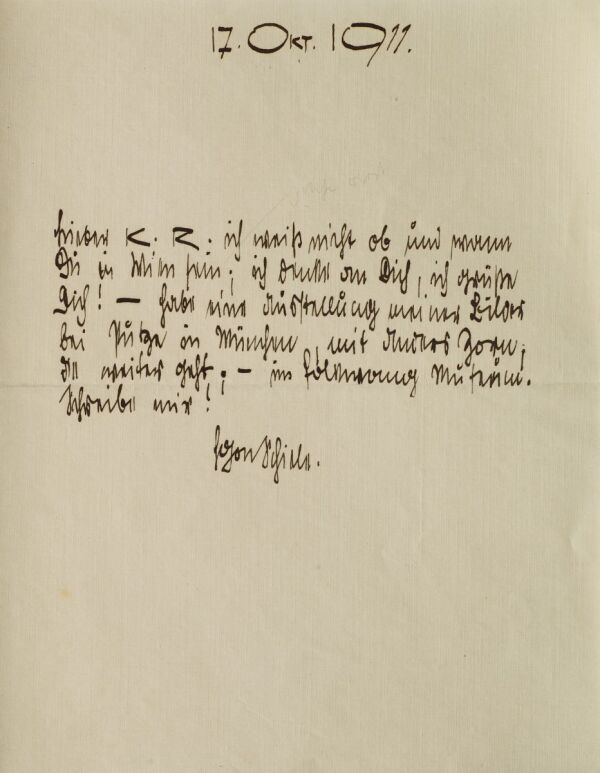 17. OKT. 1911.
Lieber K. R. ich weiß nicht ob und wann
Du in Wien sein; ich denke an Dich, ich grüße
Dich! — habe eine Ausstellung meiner Bilder
bei Putze in München, mit Anders Zorn;
die weiter geht; — im Folkwang Museum.
Schreibe mir!
Egon Schiele.